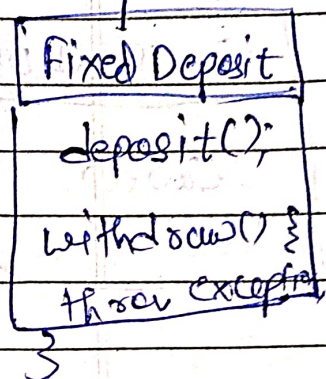 Fixed Deposit
deposit();
withdraw() {
throw exception
}